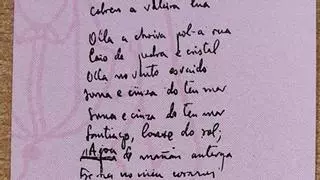 cobren a valeira lua
Olla a choiva pol-a rua
laio de pedra e cristal
Olla no vento esvaido
soma e cinza do teu mar
Soma e cinza do teu mar
Santiago, lonxe do sol;
Agoa da mañán anterga
no meu corazon